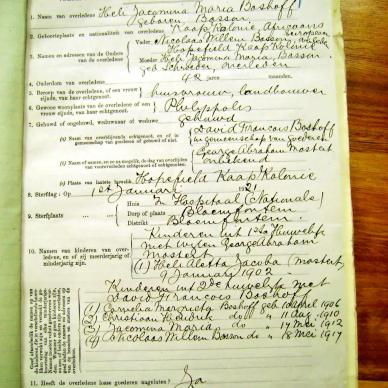 1. Naam van overledene Heli Jacomina Maria Boshoff
geboren, Basson.
2. Geboorteplaats en nationaliteit van overledene Kaap Kolonie Africaans
european
3. Namen en adressen van de Ouders van de overledene
Vader Nicolaas Willem Basson, overleden
Hopefield Kaap Kolonie
Moeder Heli Jacomina Maria, Basson,
geb Schreuder, overleden
4. Ouderdom van overledene 42 jaren maanden.
5. Beroep van de overledene, of een vrouw zijnde, van haar echtgenoot. huisvrouw, landbouwer
6. Gewone woonplaats van de overledene of een vrouw zijnde, van haar echtgenoot. Philippolis
7. Gehuwd of ongehuwd, weduwnaar of weduwe gehuwd
(a) Naam van overlevende echtgenoot, en of in gemeenschap van goederen gehuwd of niet.
David Francois Boshoff
in gemeenschap van goederen
George Abraham Mostert
overleden
Plaats van laatste huwelik Hopefield Kaap Kolonie
8. Sterfdag: Op 1st Januari 1921
9. Sterfplaats
Huis In Hospitaal (Nationals)
Dorp of plaats Bloemfontein
Distrikt Bloemfontein.
10. Namen van kinderen van overledene, en of zij meerderjarig of minderjarig zijn.
Kinderen uit 1ste Huwelik
met wijlen George Abraham
Mostert
(1) Heli Aletta Jacoba (Mostert,
9 Januari 1902 -
Kinderen uit 2de huwelik met
David Francois Boshoff
(1) Cornelia Margrieta Boshoff geb 1906
(2) Christiaan Hendrik do " 11 Aug. 1910
(3) Jacomina Maria do " 17 Mei 1912
(4) Nicolaas Willem Basson do " 18 Mei 1917
11. Heeft de overledene losse goederen nagelaten? Ja